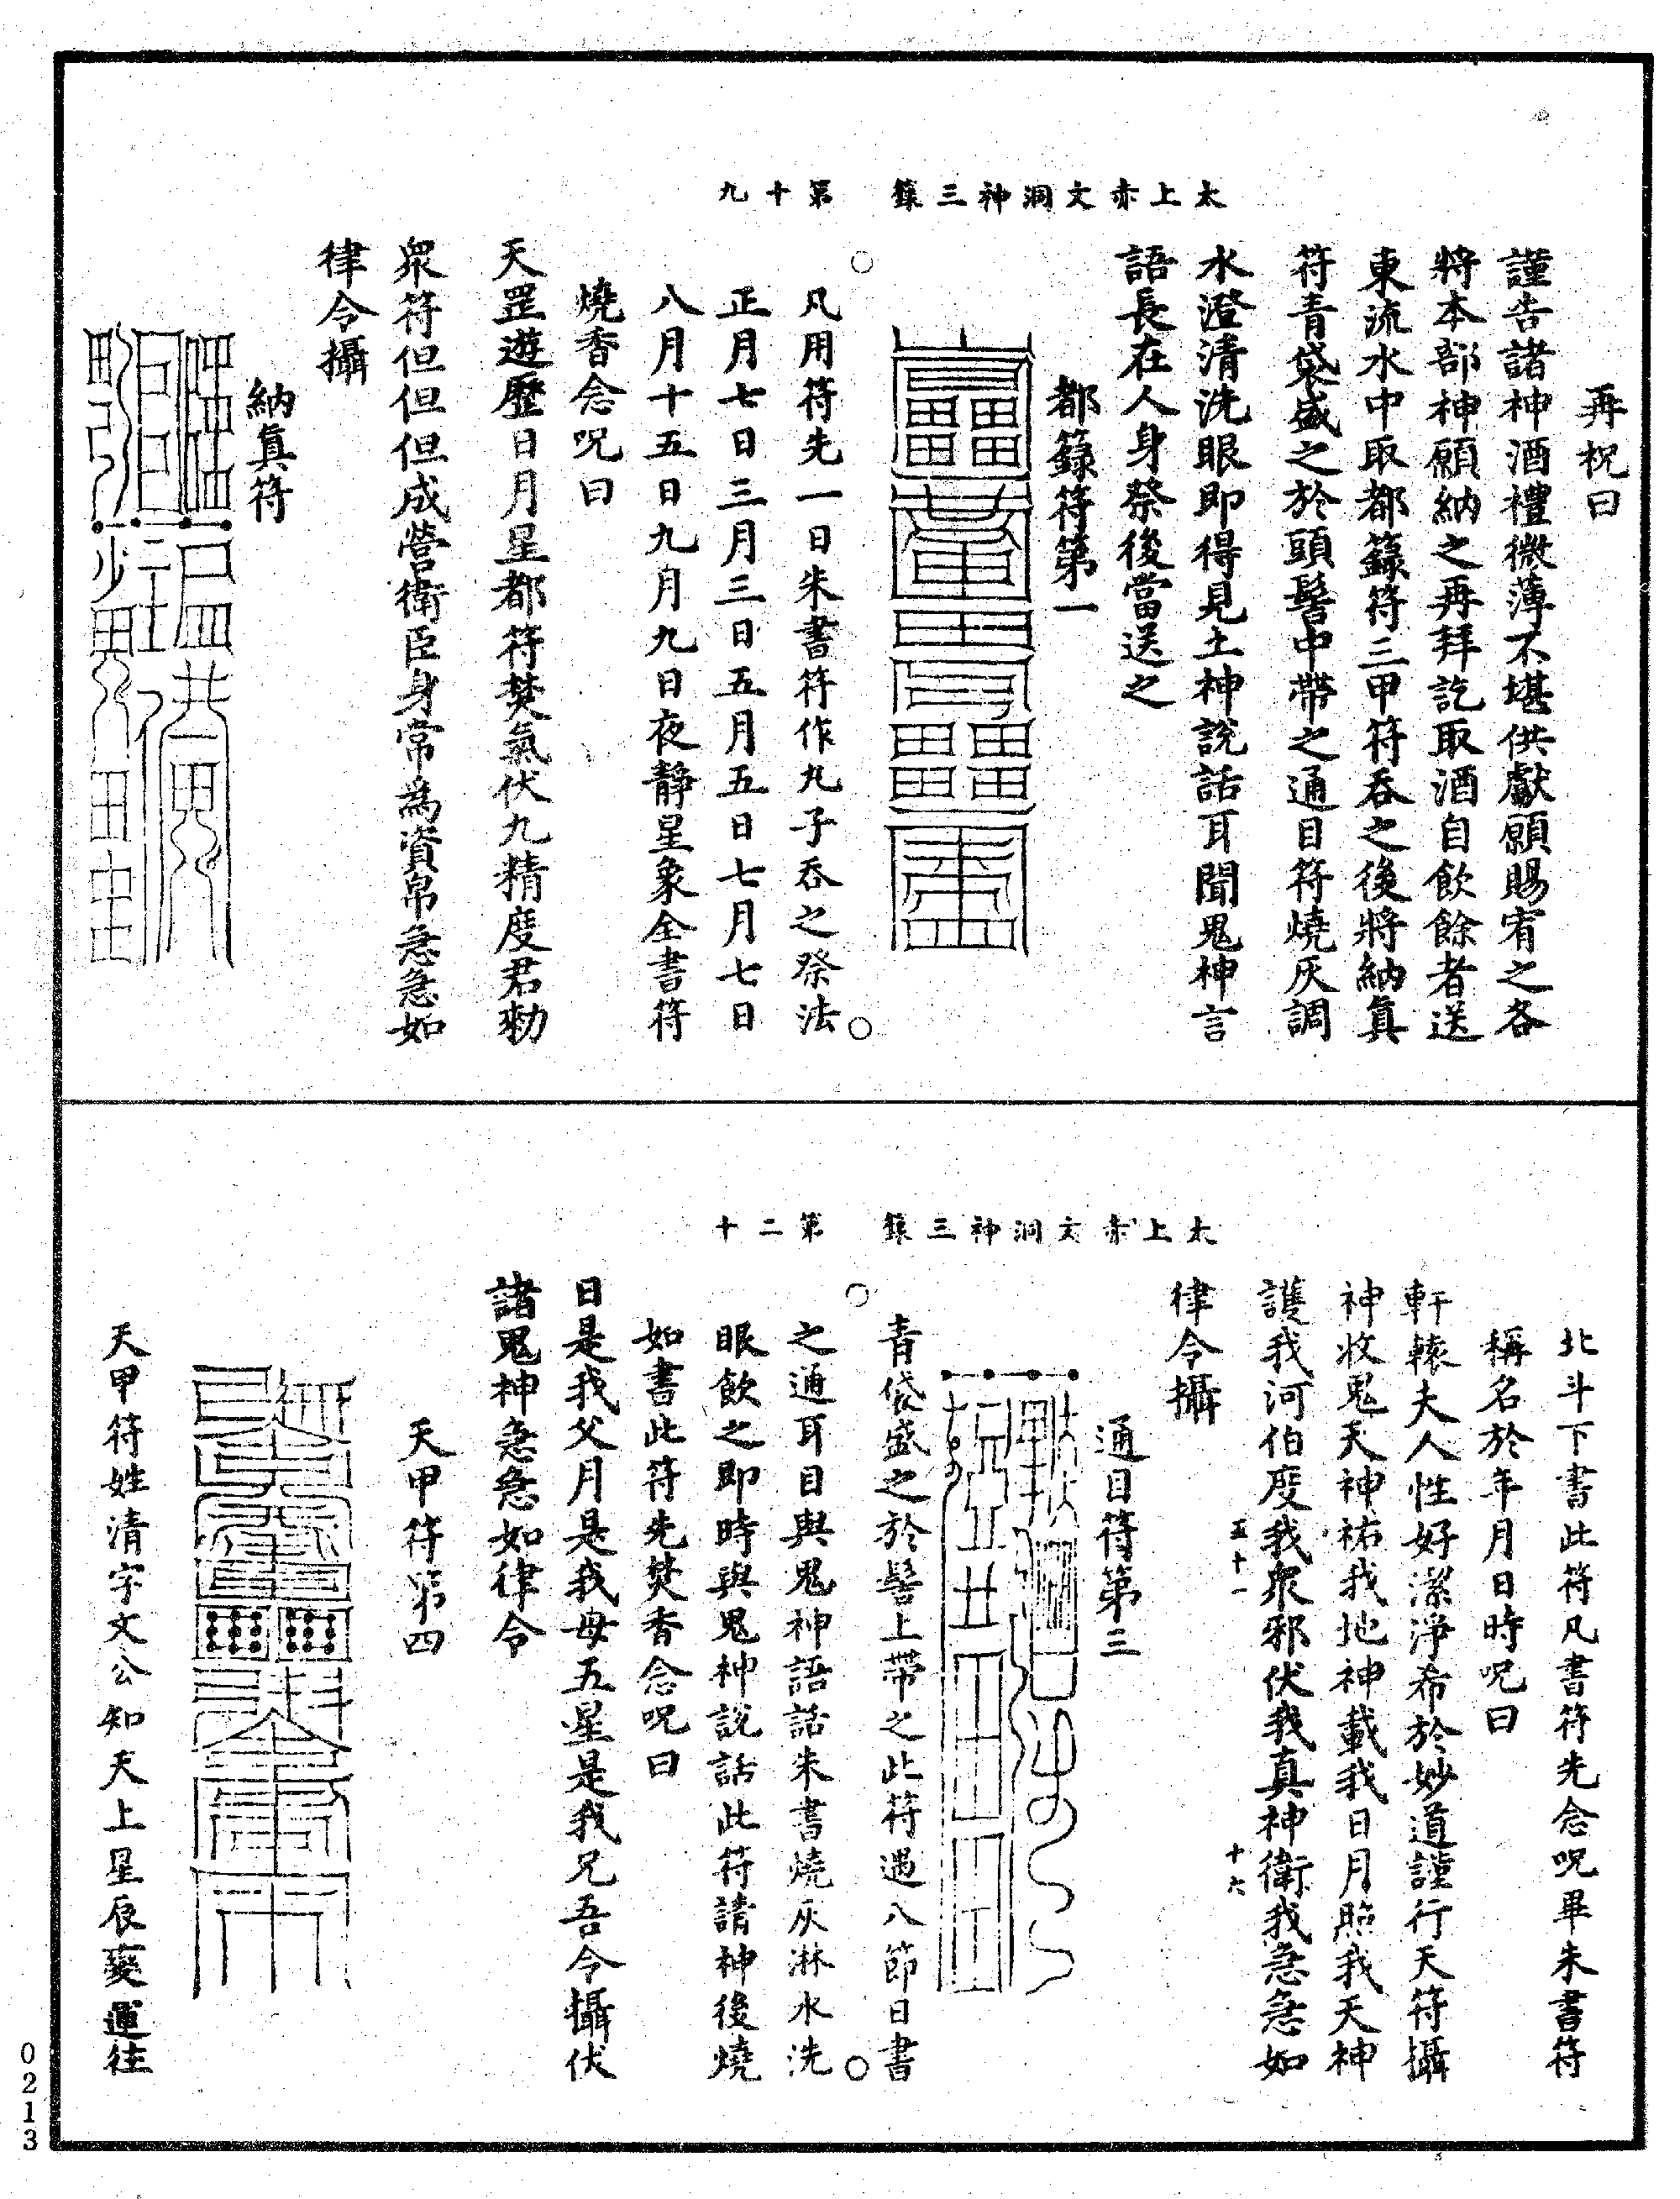 再祝曰
謹告諸神酒禮微薄不堪供獻願賜宥之各
將本部神願納之再拜訖取酒自飲餘者送
東流水中取都籙符三甲符吞之後將納真
符青袋盛之於頭髻中帶之通目符燒灰調
水澄清洗眼即得見土神說話耳聞鬼神言
語長在人身祭後當送之
都籙符第一
太上赤文洞神三籙 第十九
凡用符先一日朱書符作丸子吞之祭法
正月七日三月三日五月五日七月七日
八月十五日九月九日夜靜星象全書符
燒香念呪曰
天罡遊歷日月星都符焚氣伏九精度君勑
眾符但但但成營衛臣身常為資帛急急如
律令攝
納真符
北斗下書此符凡書符先念呪畢朱書符
稱名於年月日時呪曰
軒轅夫人性好潔淨希於妙道謹行天符攝
神收鬼天神祐我地神載我日月照我天神
護我河伯度我眾邪伏我真神衛我急急如
五十一 十六
律令攝
通目符第三
太上赤文洞神三籙 第二十
青袋盛之於髻上帶之此符遇八節日書
之通耳目與鬼神語話朱書燒灰淋水洗
眼飲之即時與鬼神說話此符請神後燒
如書此符先焚香念呪曰
日是我父月是我母五星是我兄吾今攝伏
諸鬼神急急如律令
天甲符第四
天甲符姓清字文公知天上星辰變運往
0213